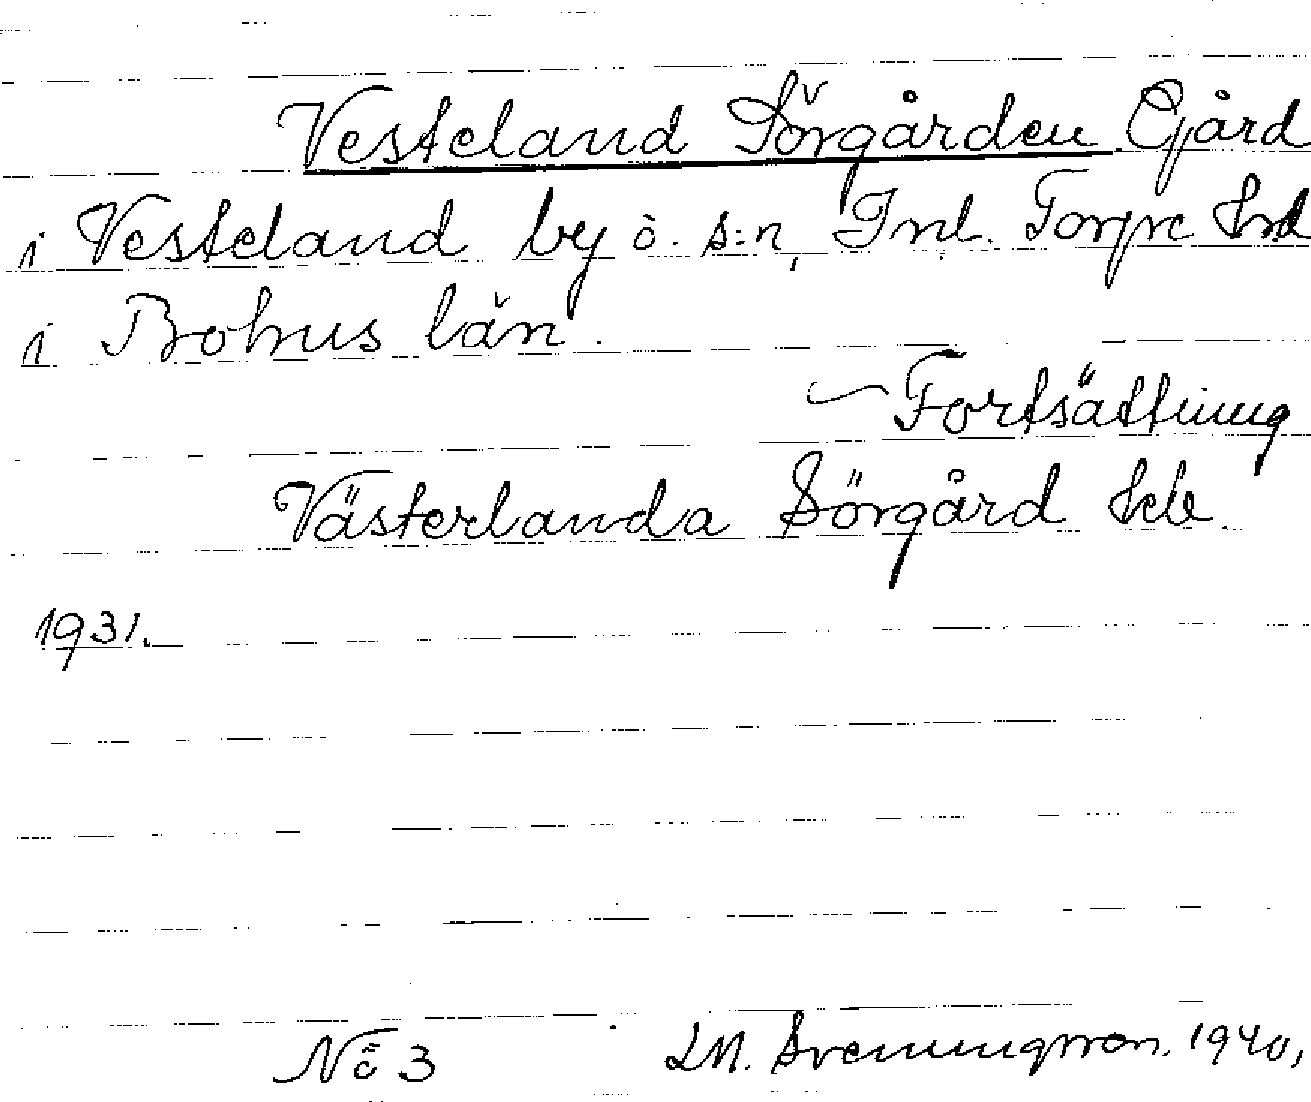 Vesteland Sörgården Gård
i Vesteland by o. s:n, Inl. Torpe Hrd
i Bohus län.
Fortsättning
Västerlanda Sörgård
1931.
No 3 LM. Svenungsson. 1940,